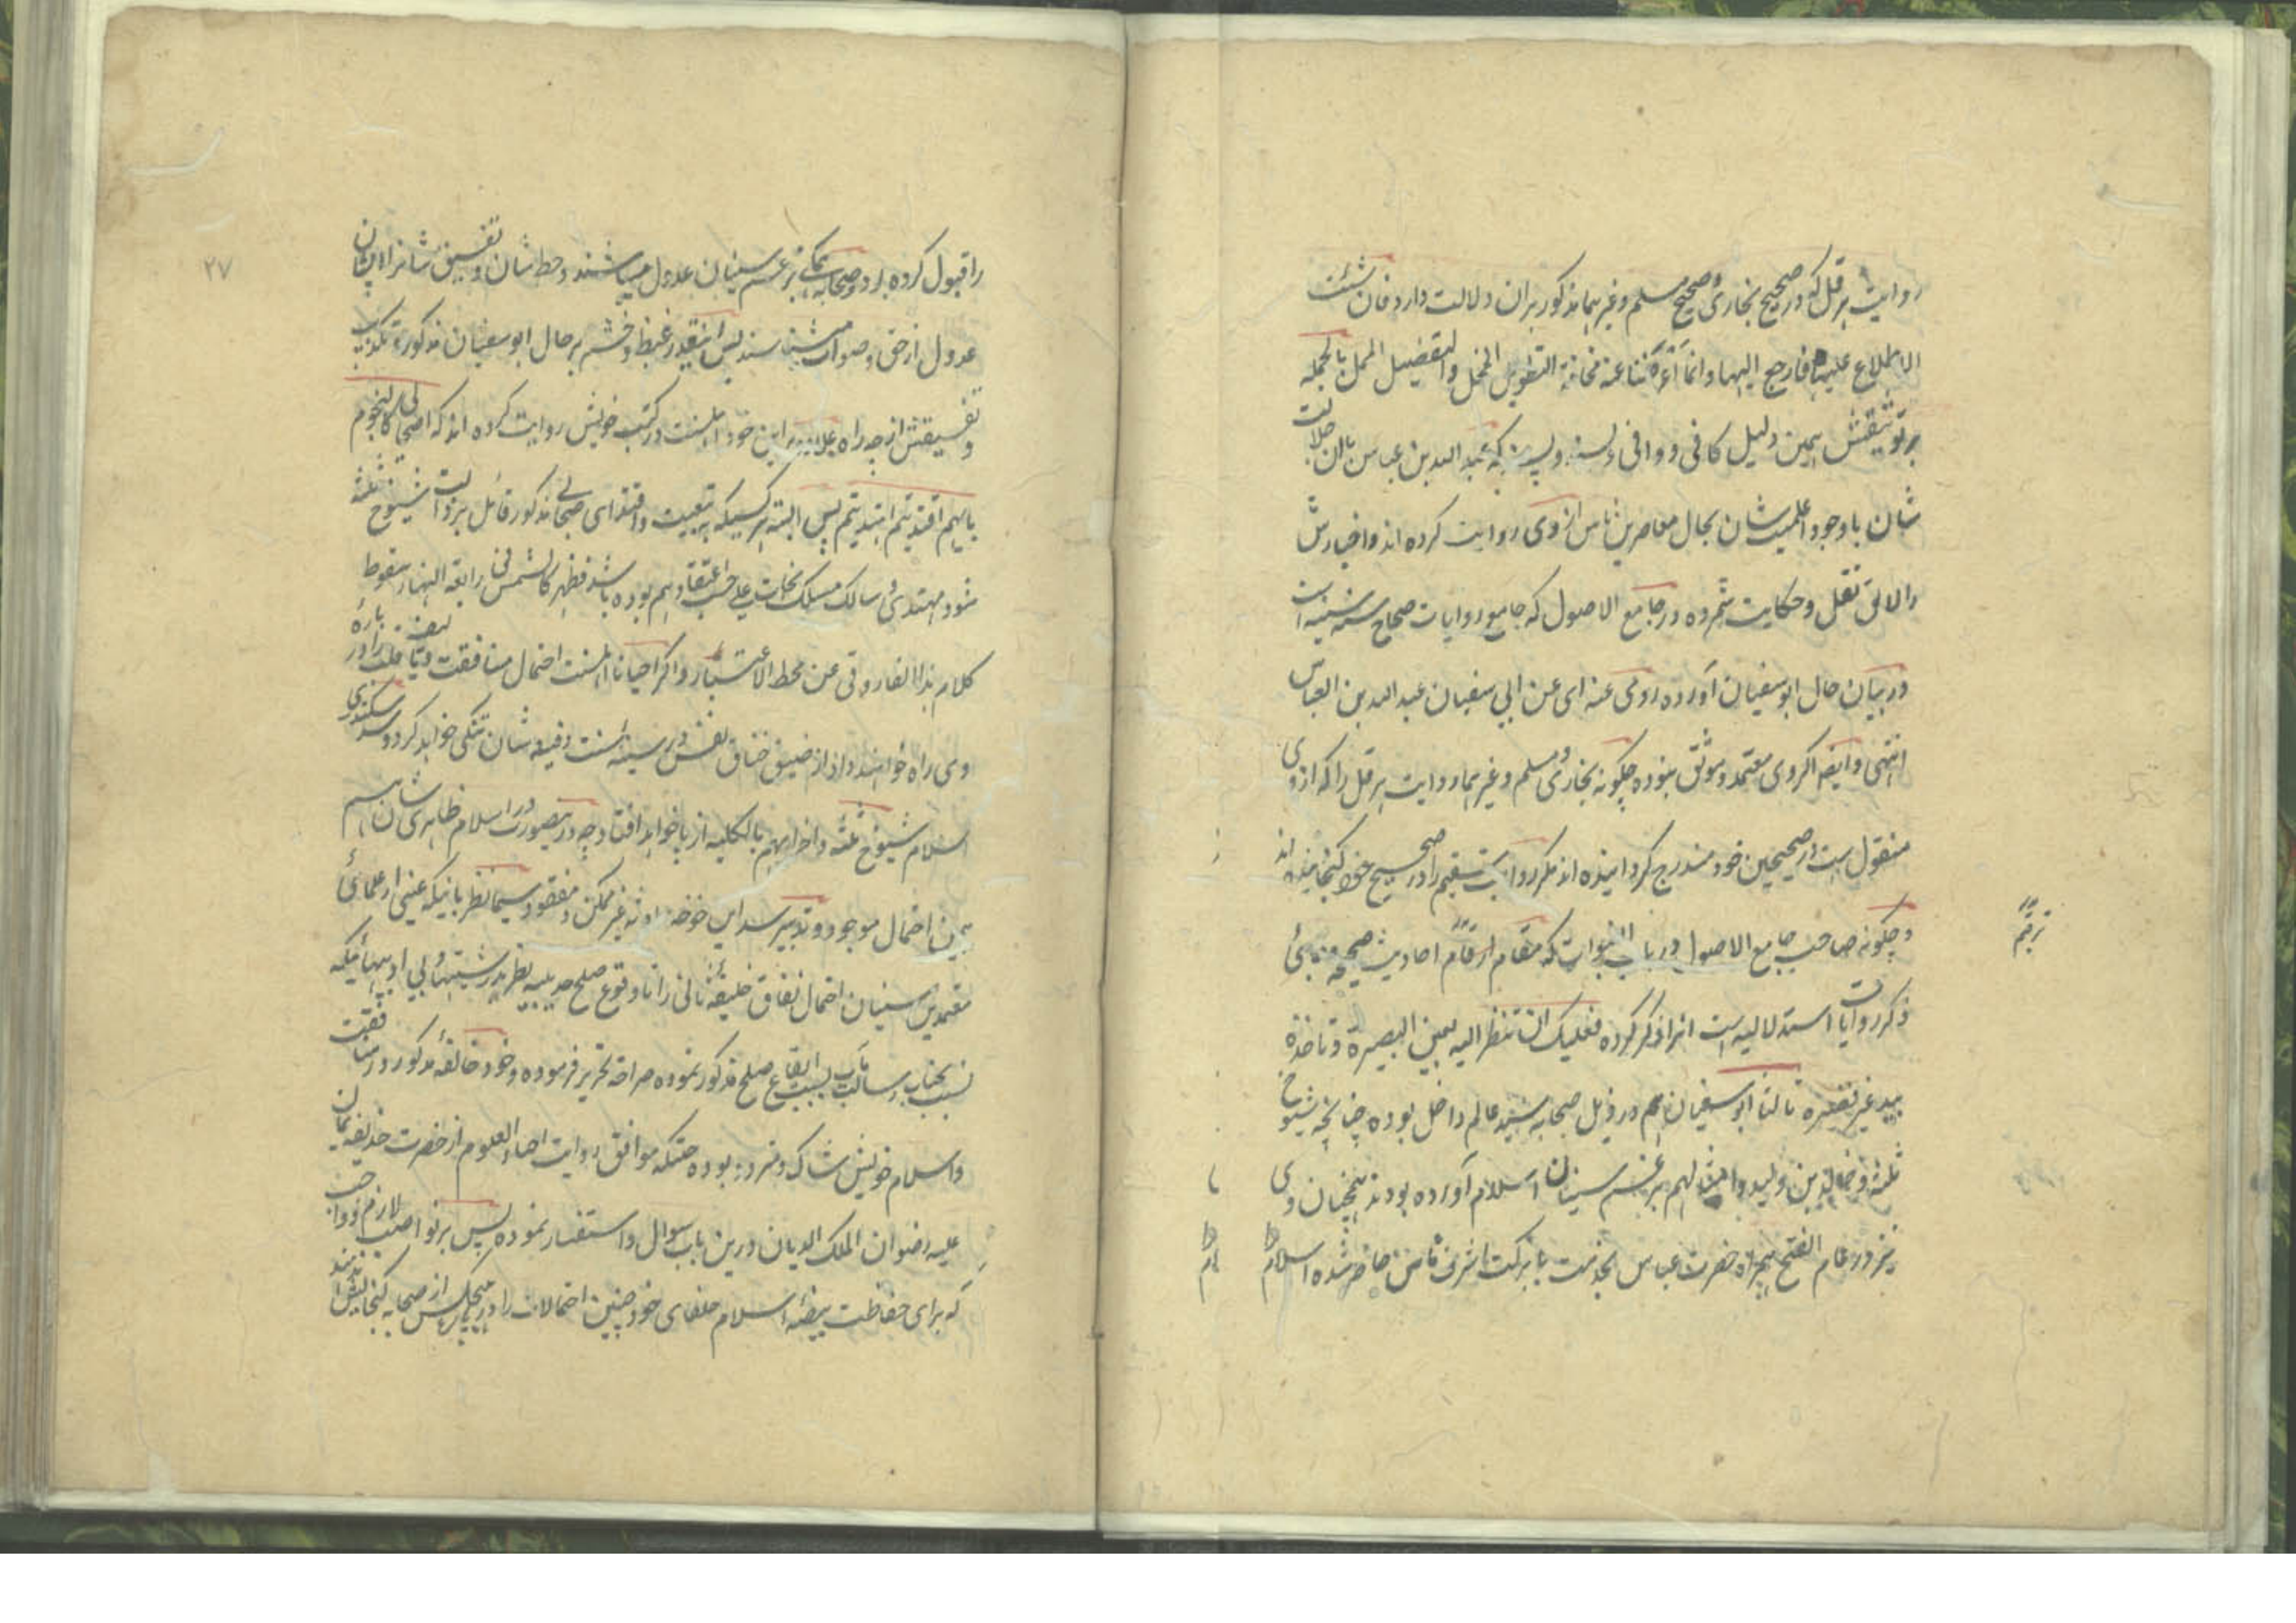 روایت هرقل که در صحیح بخاری و صحیح مسلم و غیرهما مذکور بران دلالت دارد فان شئت
الاطلاع علیها فارجع الیها وانما اعرضنا عنه مخافة التطویل المخل والتفصیل الممل بالجمله
بر توثیقش همین دلیل کافی و وافی بسند که عبد الله بن عباس بان جلالت
شان با وجود اعلمیت شان بحال معاصرین ناس از وی روایت کرده اند و اخبارش
را لائق نقل و حکایت شمرده در جامع الاصول که جامع روایات صحاح سته سنیه است
در بیان حال ابوسفیان آورده روی عنه ای عن ابی سفیان عبد الله بن العباس
انتهی و ایضا اگر وی معتمد و موثق نبوده چگونه بخاری و مسلم و غیرهما روایت هرقل را که از وی
منقول ست در صحیحین خود مندرج گردانیده اند مگر روایت سقیم را در صحیح خود گنجانیده اند
و چگونه صاحب جامع الاصول در باب النبوات که مقام ارقام احادیث صحیحه و
ذکر روایات استدلالیه است انرا ذکر کرده فعلیک ان تنظر الیه بعین البصیرة و تاخذه
بید غیر قصیره ثالثا ابو سفیان هم در ذیل صحابه سید عالم داخل بوده چنانچه شیوخ
ثلثه و خالد بن ولید و امثالهم بزعم سنیان اسلام آورده بودند همچنان وی
نیز در عام الفتح همراه حضرت عباس بخدمت با برکت اشرف ناس حاضر شده اسلام
ترقیم
را قبول کرده بود و صحابه همگی بزعم سنیان عدول میباشند و حط شان و تفسیق شانرا ایشان
عدول از حق و صواب میشناسند پس اینقدر غیظ و خشم بر حال ابو سفیان مذکور و تکذیب
و تفسیقش از چه راه علاوه این خود اهلسنت در کتب خویش روایت کرده اند که اصحابی کالنجوم
بایهم اقتدیتم اهتدیتم پس البته هر کسیکه به تبعیت و اقتدای صحابی مذکور قائل بزوال شیوخ ثلثه
شود مهتدی و سالک مسلک نجات علی حسب اعتقادهم بوده باشد فظهر کالشمس فی رابعة النهار سقوط
کلام هذا الفاروقی عن محط الاعتبار و اگر احیانا اهلسنت احتمال منافقت و را در باره
وی راه خواهند داد از ضیق خناق نفس در سینه اهلسنت رفیعه شان تنگی خواهد کرد و سد سکندری
اسلام شیوخ ثلثه و اضرابهم بالکلیه از پا خواهد افتاد چه درینصورت در اسلام ظاهری شان هم
همین احتمال موجود و تدبیر سد این رخنه غیر ممکن و مفقود سیما نظر بانیکه عینی از علمای
معتمدین سنیان احتمال نفاق خلیفه ثانی را تا وقوع صلح حدیبیه نظر بر و بی ادبیهائیکه
نسبت بجناب رسالت مآب بسبب ایقاع صلح مذکور نموده صراحة تحریر فرموده و خود خالفه مذکور در منافقت
و اسلام خویش شاک و متردد بوده حتیکه موافق روایت احیاء العلوم از حضرت حذیفه یمان
علیه رضوان الملک الدیان درین باب سوال و استفسار نموده پس بر نواصب لازم و واجب
که برای حفاظت بیضه اسلام خلفای خود چنین احتمالات را در هیچکس از صحابه گنجایش ندهند
۲۷